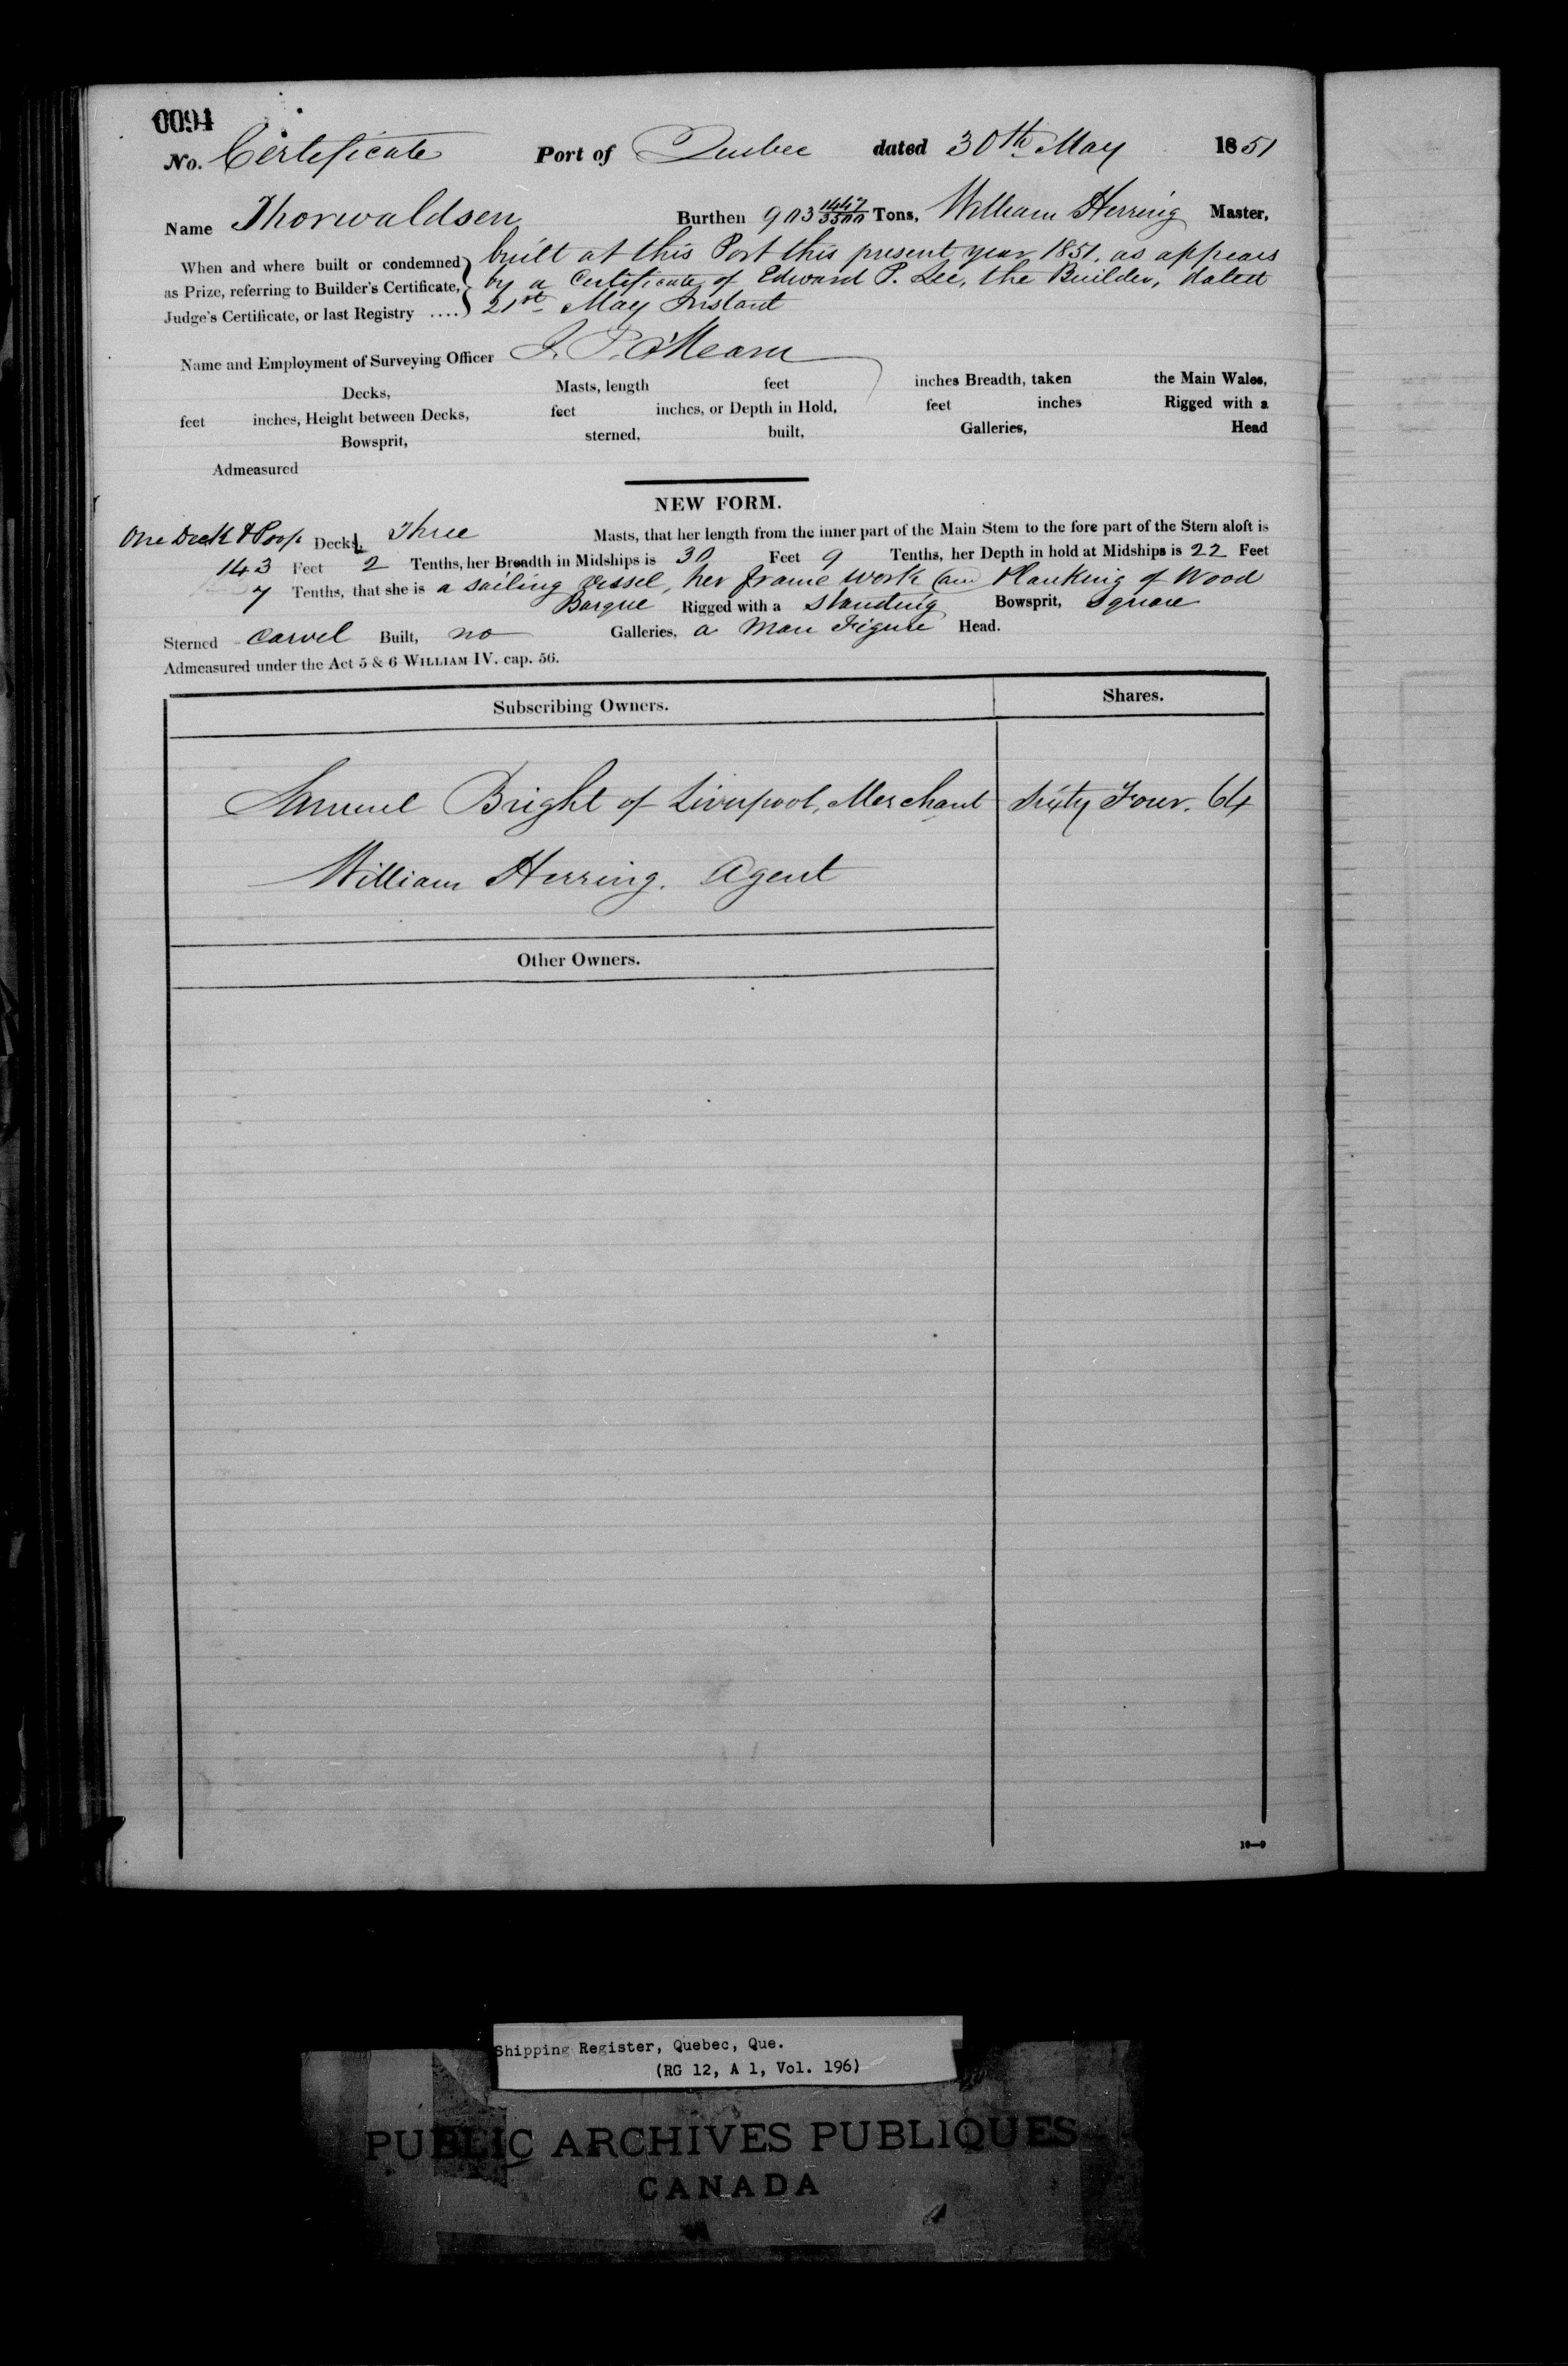 0094
No. Certificate Port of Quebec dated 30th May 1851
Name Thorwaldsen Burthen 903 1447/3500 Tons, William Herring Master,
When and where built or condemned built at this Port this present year 1851. as appears
as Prize, referring to Builder's Certificate, by a Certificate of Edward P. Lee, the Builder, dated
Judge's Certificate, or last Registry .... 21st May Instant
Name and Employment of Surveying Officer J. P. O'Meara
Decks, Masts, length feet inches Breadth, taken the Main Wales,
feet inches, Height between Decks, feet inches, or Depth in Hold, feet inches Rigged with a
Bowsprit, sterned, built, Galleries, Head
Admeasured
NEW FORM.
One Deck & Poop Decks, Three Masts, that her length from the inner part of the Main Stem to the fore part of the Stern aloft is
143 Feet 2 Tenths, her Breadth in Midships is 30 Feet 9 Tenths, her Depth in hold at Midships is 22 Feet
7 Tenths, that she is a sailing vessel, her frame work and Planking of Wood
Barque Rigged with a standing Bowsprit, Square
Sterned Carvel Built, no Galleries, a Man Figure Head.
Admeasured under the Act 5 & 6 WILLIAM IV. cap. 56.
Subscribing Owners. Shares.
Samuel Bright of Liverpool, Merchant Sixty Four. 64
William Herring. Agent
Other Owners.
10—9
Shipping Register, Quebec, Que.
(RG 12, A 1, Vol. 196)
PUBLIC ARCHIVES PUBLIQUES
CANADA